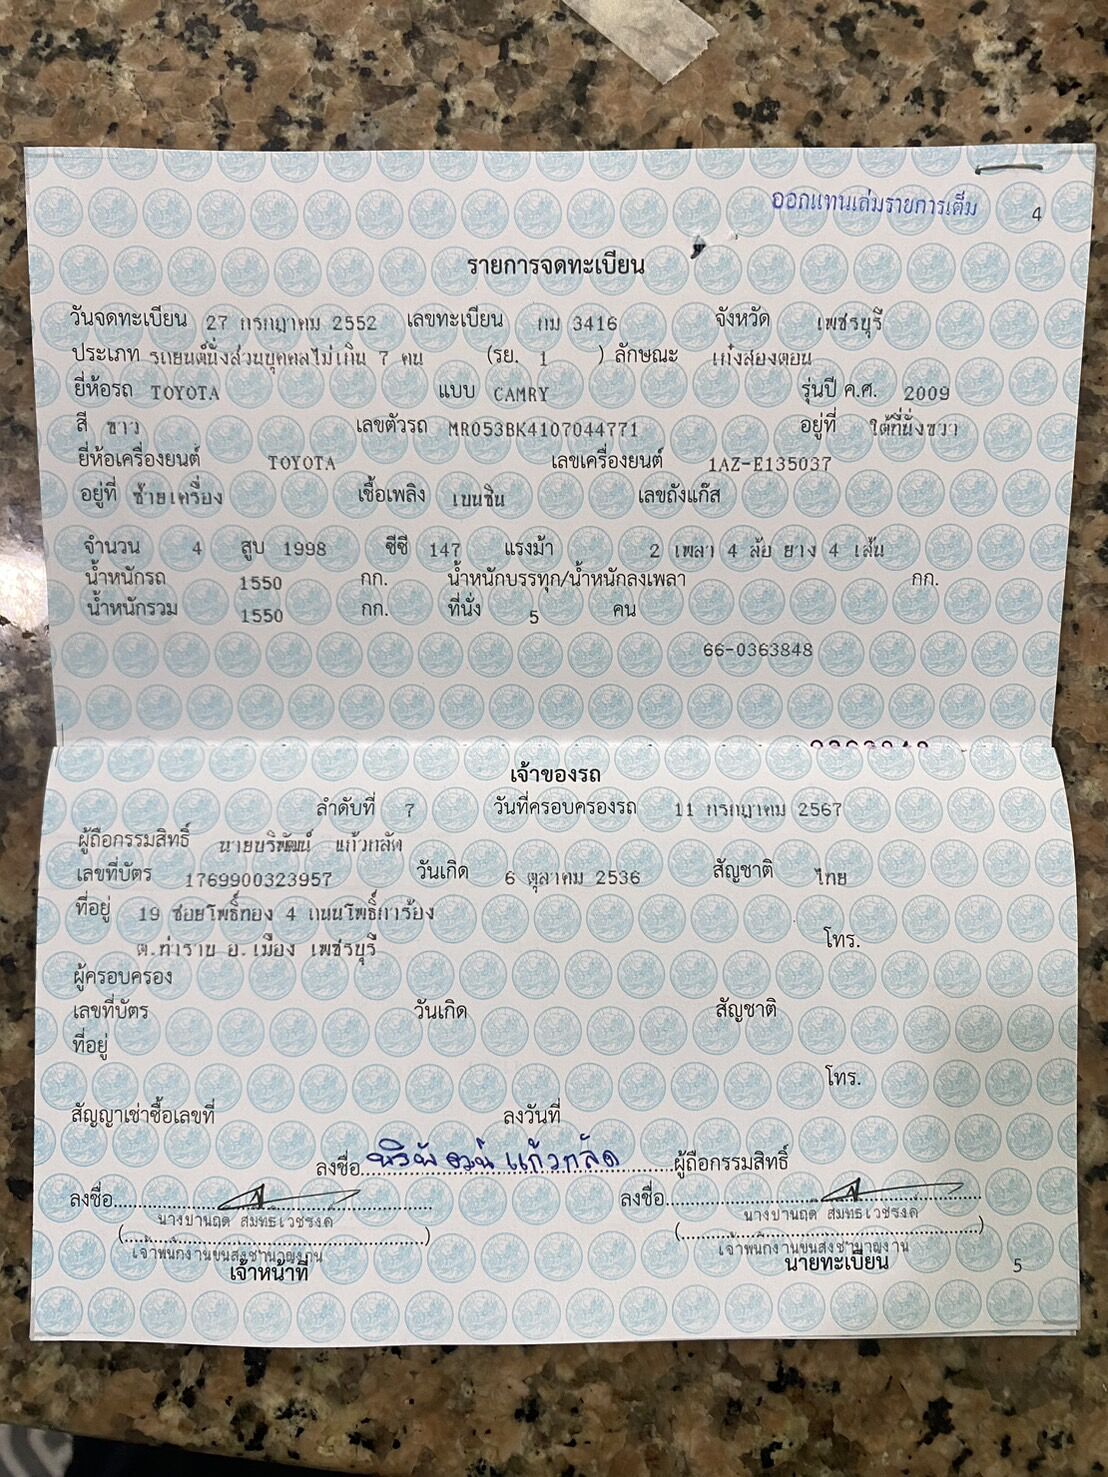 ออกแทนเล่มรายการเต็ม 4
รายการจดทะเบียน
วันจดทะเบียน 27 กรกฎาคม 2552 เลขทะเบียน กม 3416 จังหวัด เพชรบุรี
ประเภท รถยนต์นั่งส่วนบุคคลไม่เกิน 7 คน (รย. 1 ) ลักษณะ เก๋งสองตอน
ยี่ห้อรถ TOYOTA แบบ CAMRY รุ่นปี ค.ศ. 2009
สี ขาว เลขตัวรถ MR053BK4107044771 อยู่ที่ ใต้ที่นั่งขวา
ยี่ห้อเครื่องยนต์ TOYOTA เลขเครื่องยนต์ 1AZ-E135037
อยู่ที่ ซ้ายเครื่อง เชื้อเพลิง เบนซิน เลขถังแก๊ส
จำนวน 4 สูบ 1998 ซีซี 147 แรงม้า 2 เพลา 4 ล้อ ยาง 4 เส้น
น้ำหนักรถ 1550 กก. น้ำหนักบรรทุก/น้ำหนักลงเพลา กก.
น้ำหนักรวม 1550 กก. ที่นั่ง 5 คน
66-0363848
เจ้าของรถ
ลำดับที่ 7 วันที่ครอบครองรถ 11 กรกฎาคม 2567
ผู้ถือกรรมสิทธิ์ นายบริพัฒน์ แก้วกลัด
เลขที่บัตร 1769900323957 วันเกิด 6 ตุลาคม 2536 สัญชาติ ไทย
ที่อยู่ 19 ซอยโพธิ์ทอง 4 ถนนโพธิ์การ้อง
ต.ท่าราบ อ.เมือง เพชรบุรี โทร.
ผู้ครอบครอง
เลขที่บัตร วันเกิด สัญชาติ
ที่อยู่
โทร.
สัญญาเช่าซื้อเลขที่ ลงวันที่
ลงชื่อ บริพัฒน์ แก้วกลัด ผู้ถือกรรมสิทธิ์
ลงชื่อ ลงชื่อ
นางปานฤดี นางปานฤดี
(เจ้าพนักงานขนส่งชำนาญงาน) (เจ้าพนักงานขนส่งชำนาญงาน)
เจ้าหน้าที่ นายทะเบียน 5